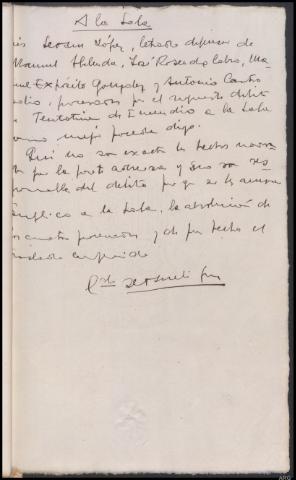 A la Sala
Seoane López, letrado defensor de
Manuel        , José Rosendo Calvo, Ma-
nuel Expósito González y Antonio Castro
     , procesados por el supuesto delito
   Tentativa de Incendio a la Sala
como mejor proceda digo.
Que no son exactos los hechos narra-
   por la parte adversa y no son res-
ponsables del delito por que se les acusa
Suplico a la Sala, la absolución de
los cuatro procesados, y de por hecho el
traslado conferido